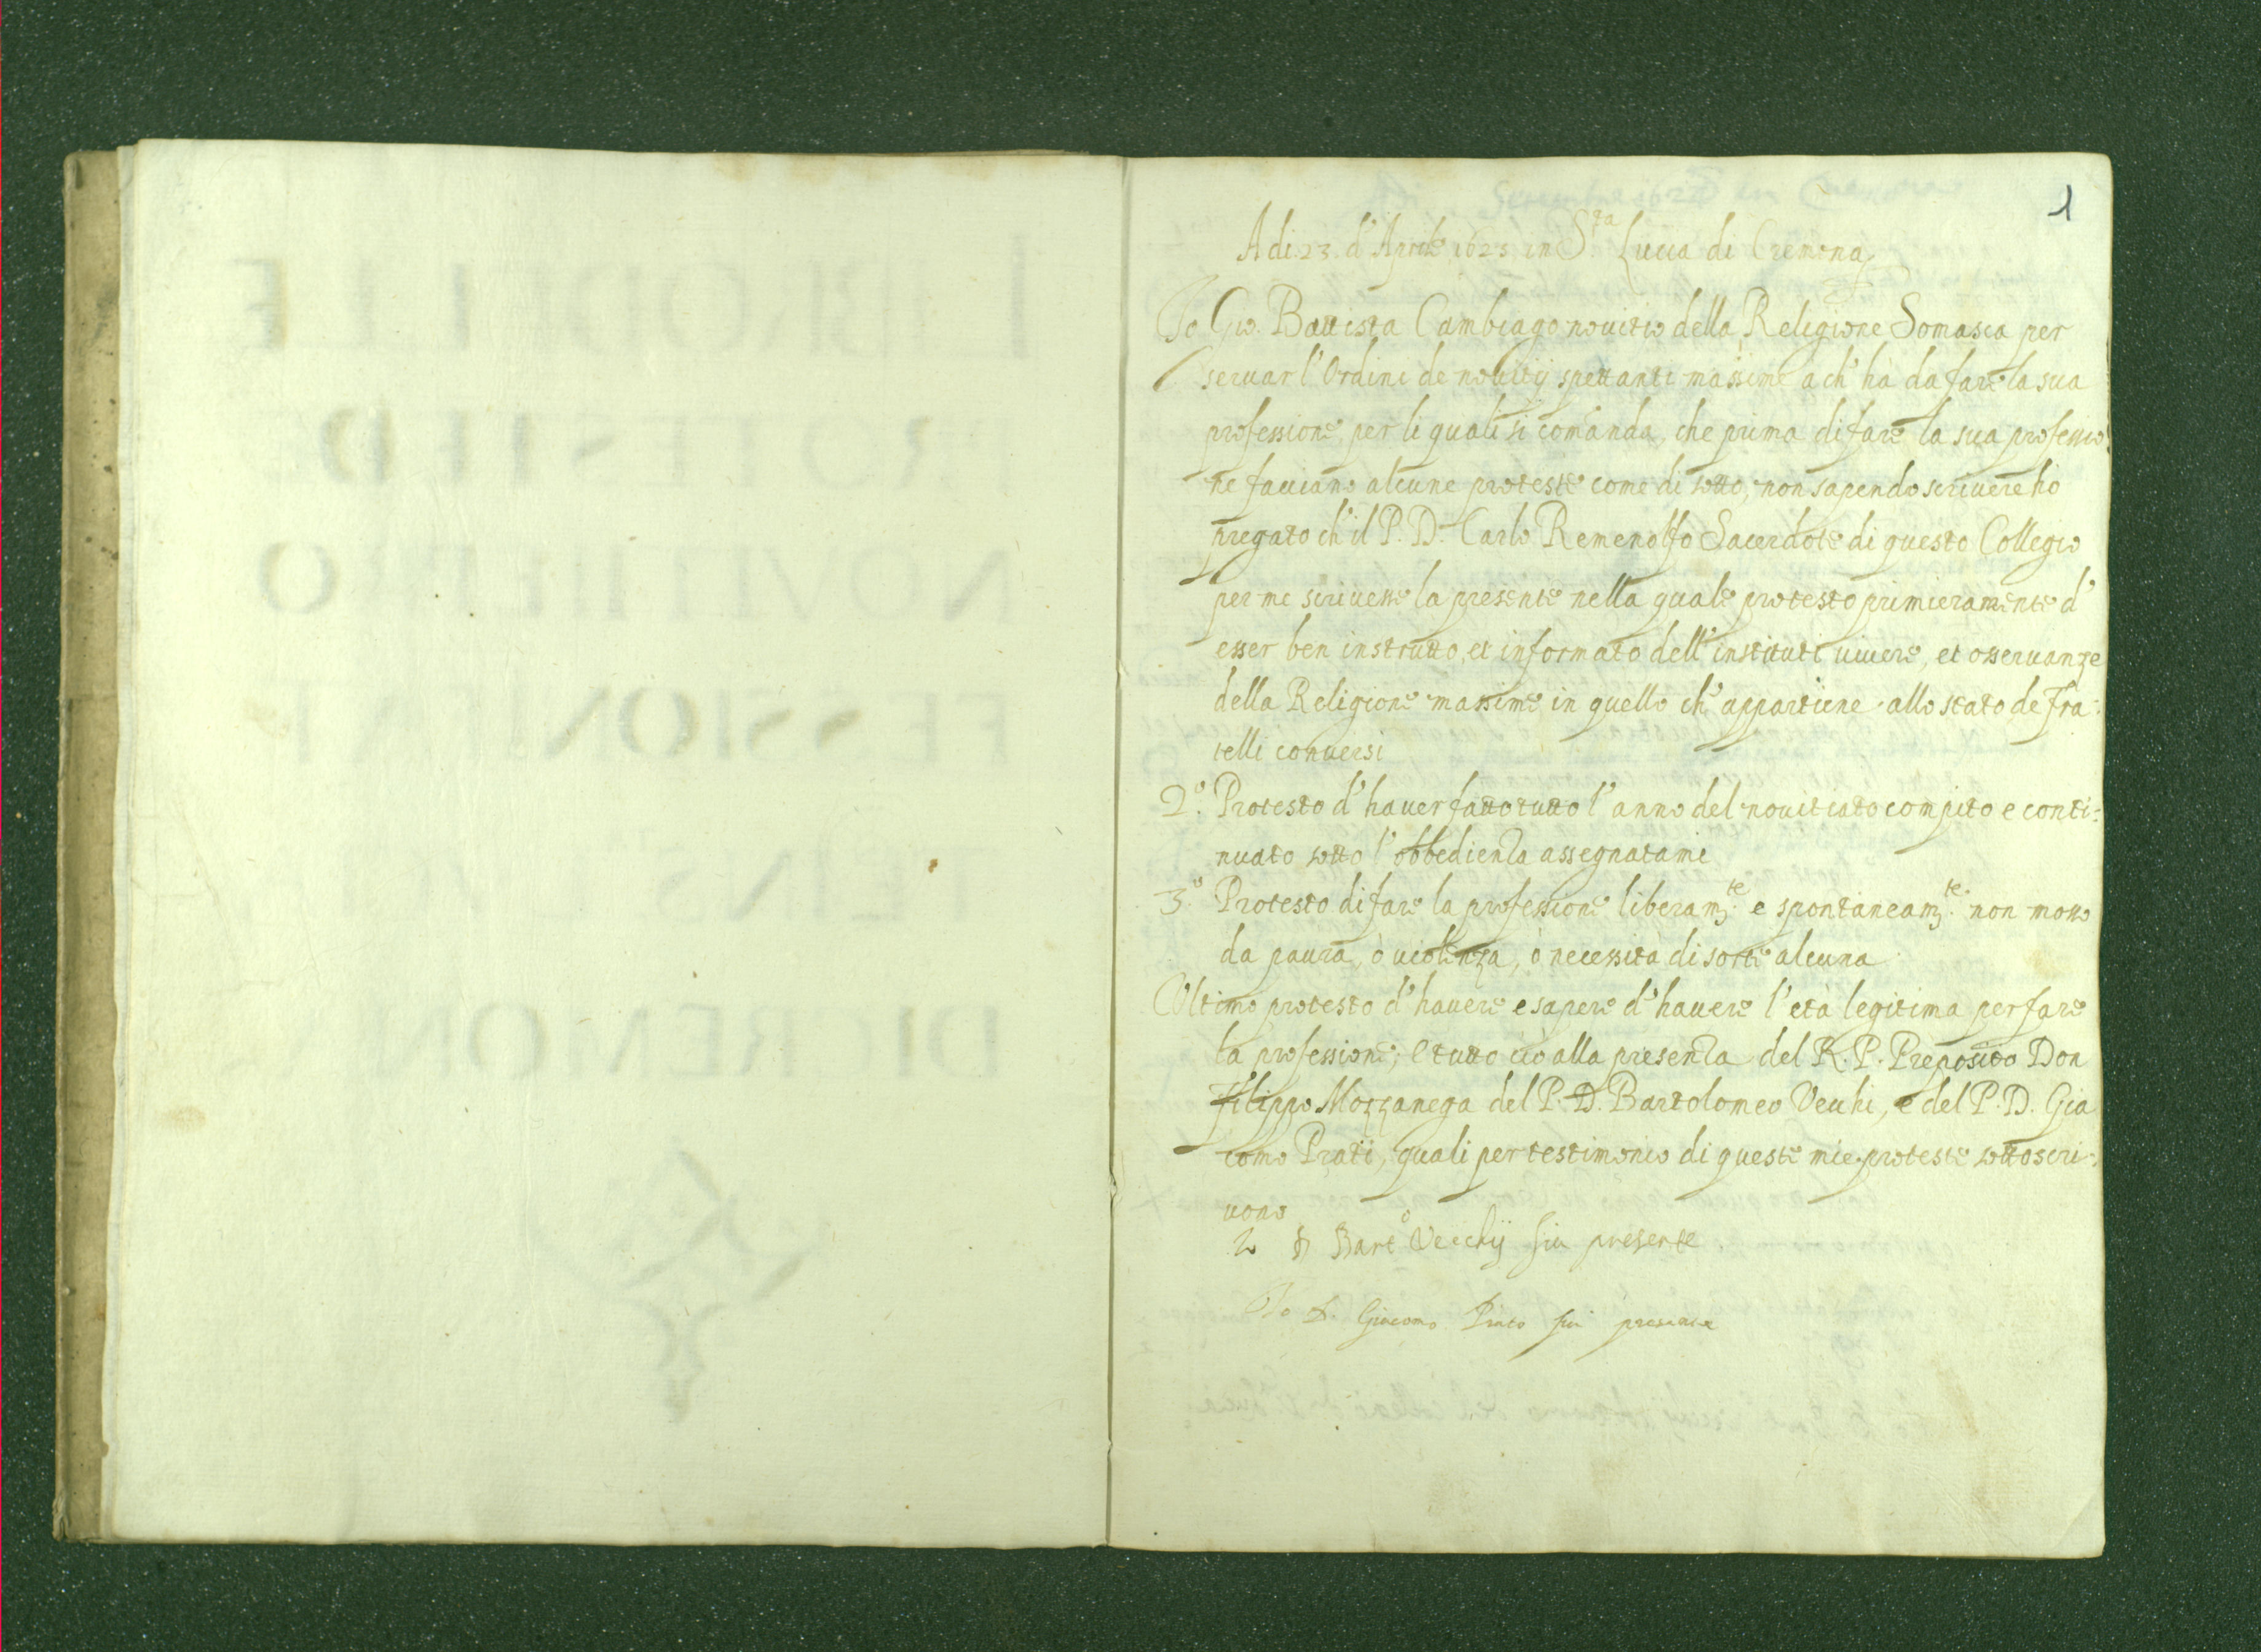 1
Adi 23 d'Aprile 1623 in S.ta Lucia di Cremona
Io Gio. Battista Cambiago novitio della Religione Somasca per
servar l'Ordini de novitij spettanti massime a ch' hà da fare la sua
professione, per li quali si comanda, che prima di fare la sua professio:
ne facciano alcune proteste come di sotto, non sapendo scrivere hò
pregato ch'il P. D. Carlo Remenolfo Sacerdote di questo Collegio
per me scrivesse la presente nella quale protesto primieramente d'
esser ben instrutto, et informato dell'instituti vivere, et osservanze
della Religione massime in quello ch' appartiene allo stato de Fra:
telli conversi
2.º Protesto d'haver fatto tutto l'anno del novitiato compito e conti:
nuato sotto l'obbedienza assegnatami
3.º Protesto di fare la professione liberam.te e spontaneam.te non mosso
da paura, ò violenza, ò necessità di sorte alcuna
Ultimo protesto d'havere e sapere d'havere l'età legitima per fare
la professione; E tutto ciò alla presenza del R. P. Preposito Don
Filippo Mozzanega del P. D. Bartolomeo Vechi, e del P. D. Gia
como Prati, quali per testimonio di queste mie proteste sottoscri:
vono
Io D Bart.o Vecchij fui presente
Io D. Giacomo Prato fui presente